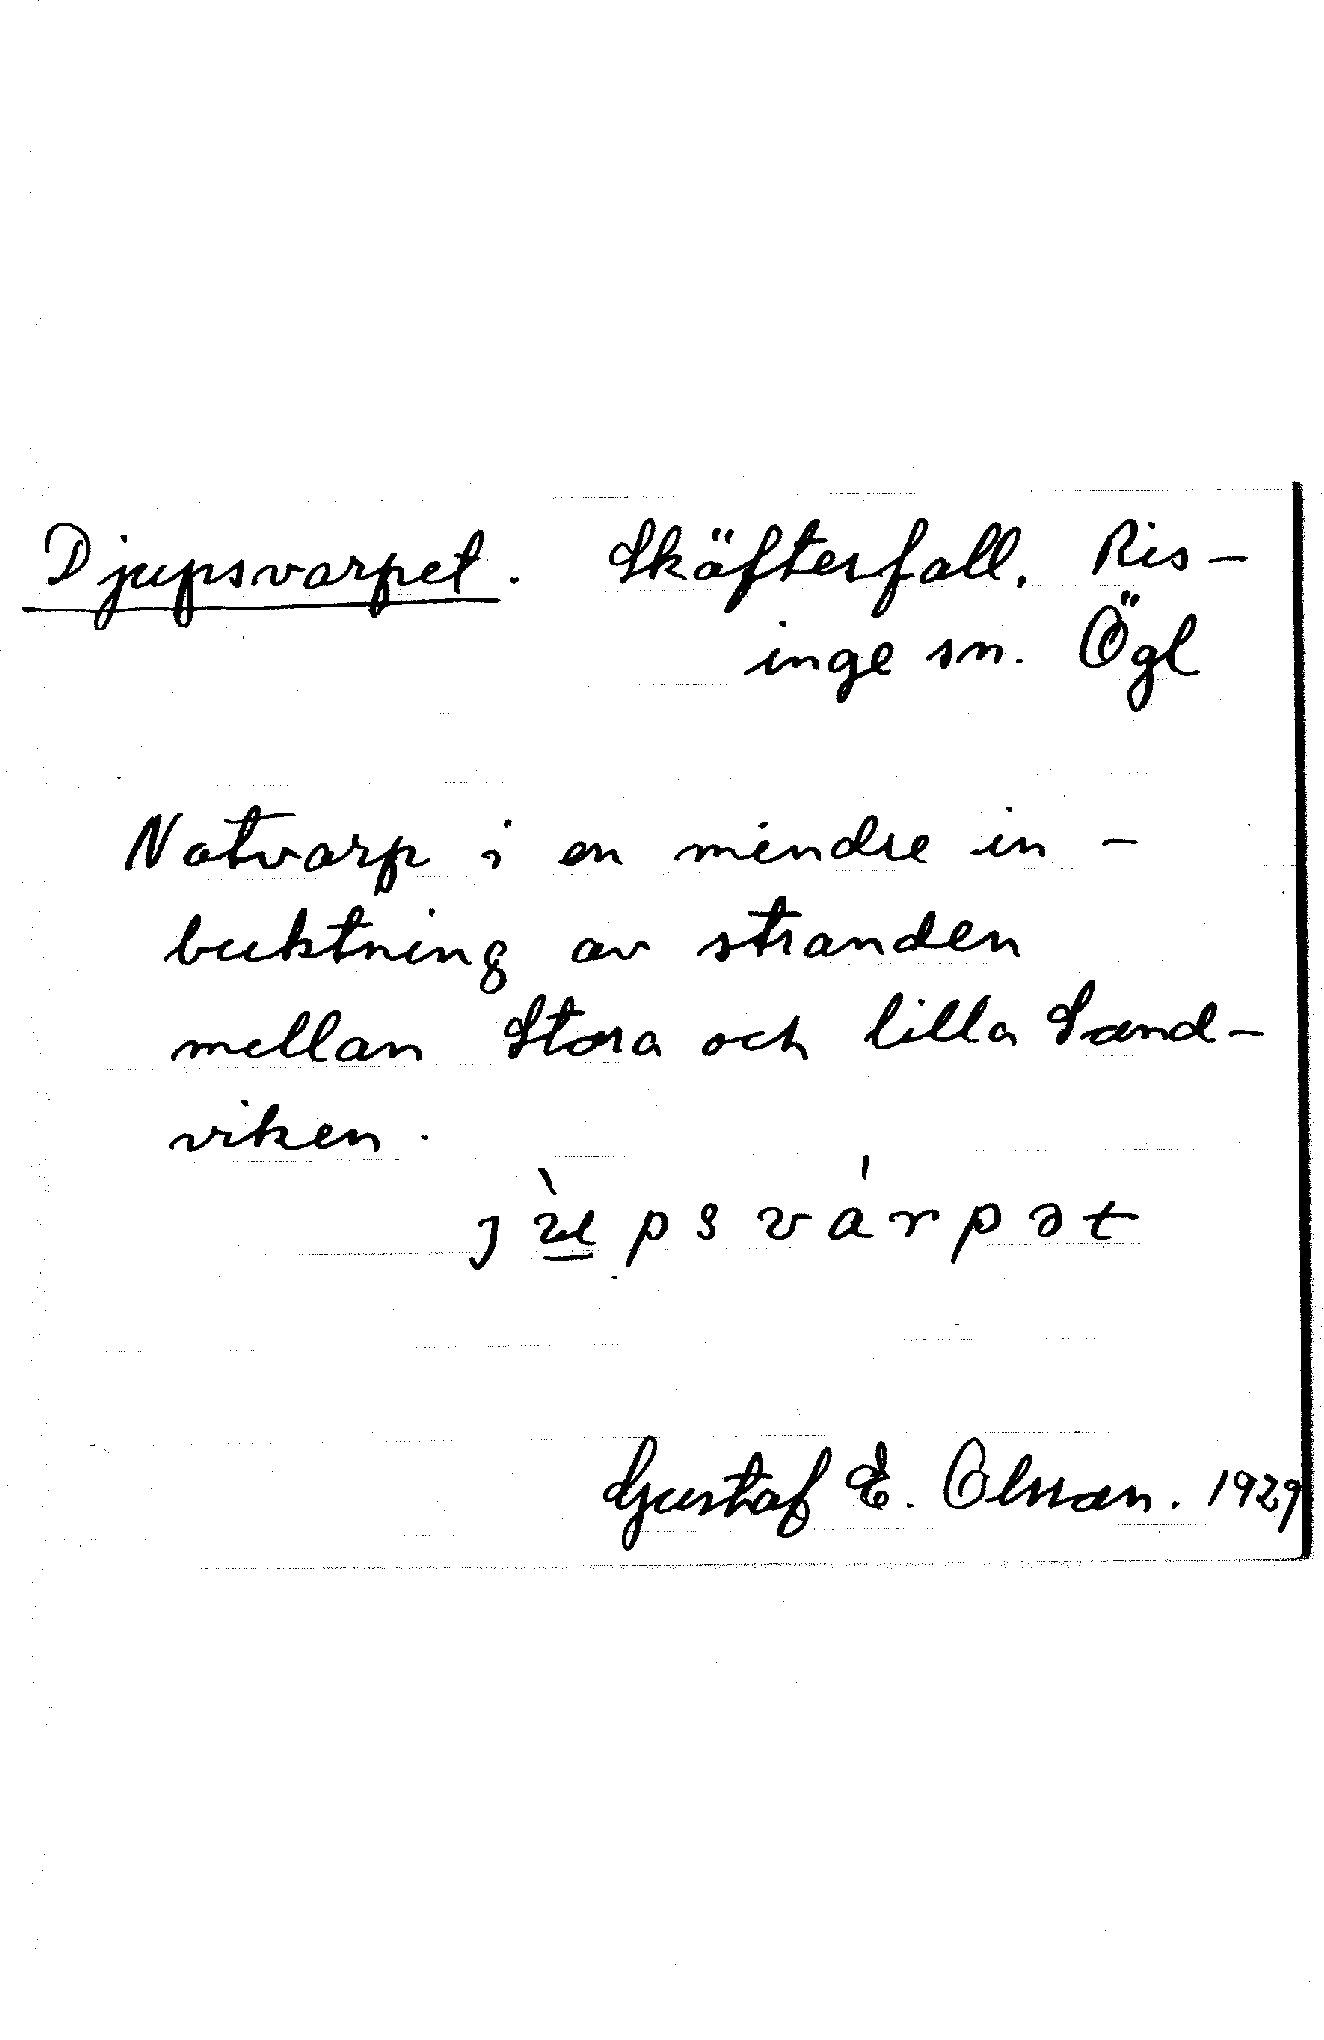 Djupsvarpet. Skäfterfall. Ris-
inge sn. Ögl
Notvarp i en mindre in-
buktning av stranden
mellan Stora och lilla Sand-
viken.
ȷù̲psvárpət
Gustaf E. Olsson. 1929